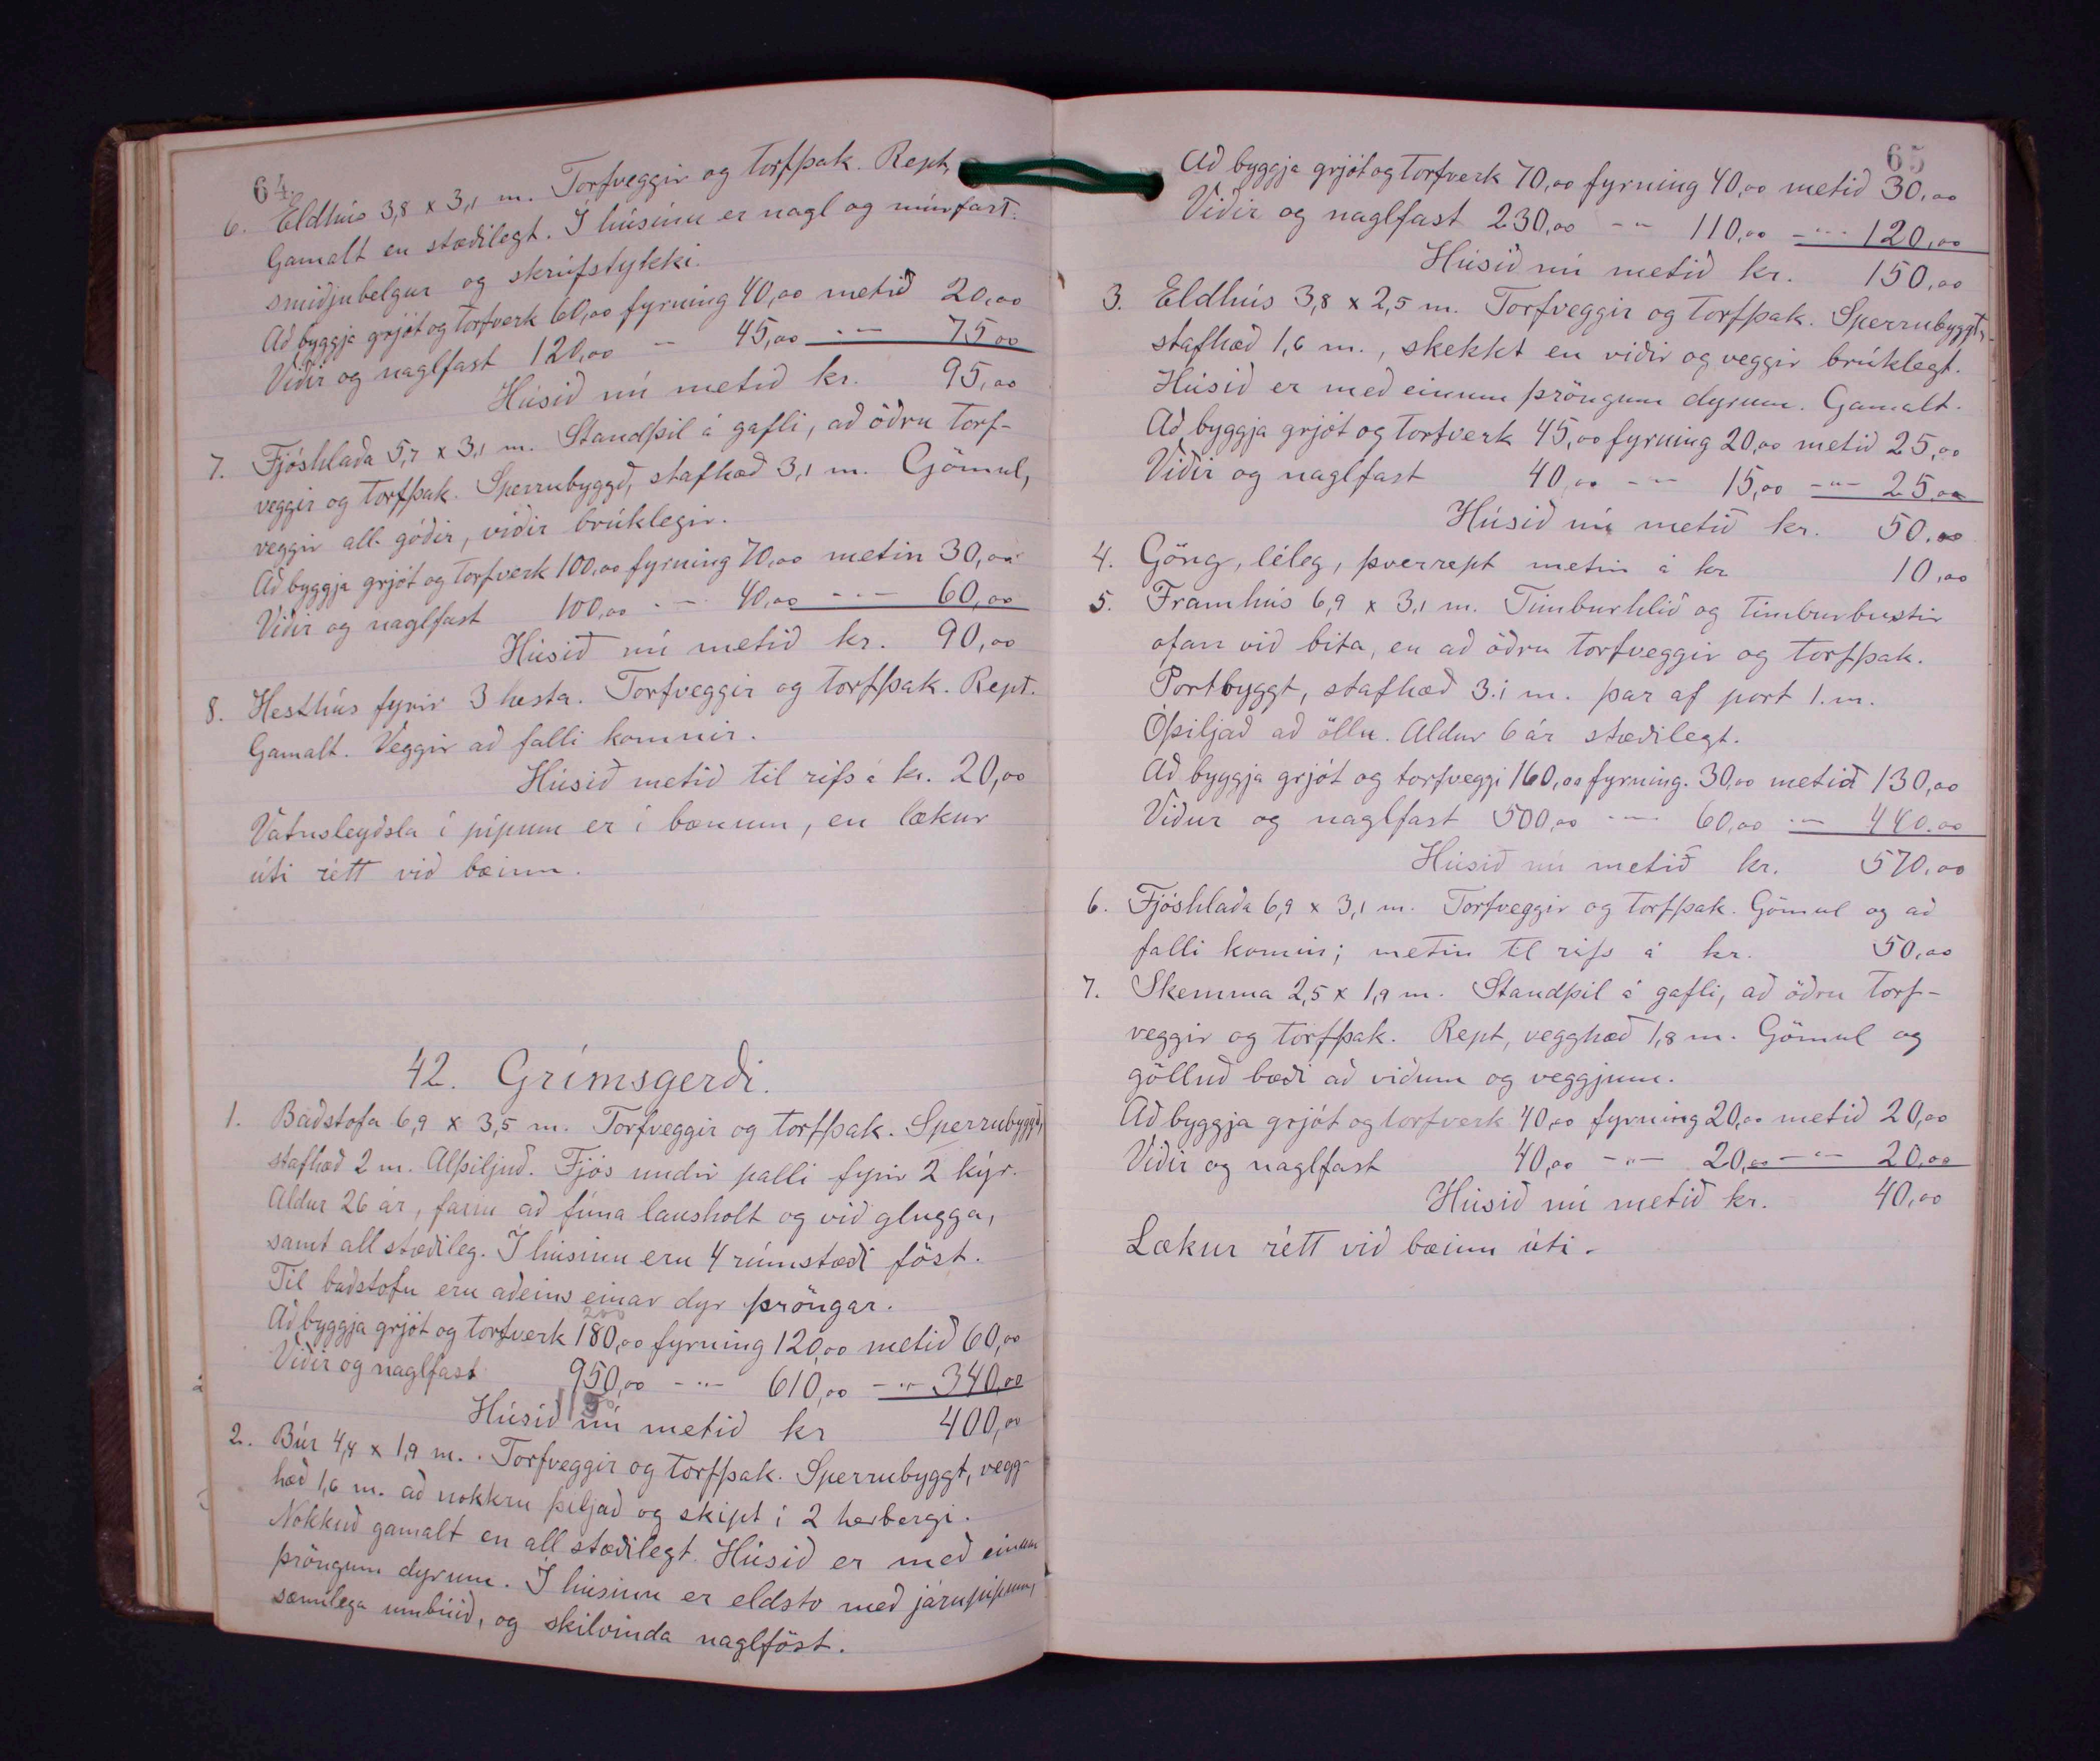 64.
6. Eldhús 3,8 x 3,1 m. Torfveggir og torfþak. Rept,
Gamalt en stæðilegt. Í húsinu er nagl og múrfast:
smiðjubelgur og skrúfstykki.
Að byggja grjót og torfverk 60,00 fyrning 40,00 metið 20,00
Viðir og naglfast 120,00 - 45,00 -"- 75,00
Húsið nú metið kr. 95,00
7. Fjóshlaða 5,7 x 3,1 m. Standþil á gafli, að öðru torf-
veggir og torfþak. Sperrubyggð, stafhæð 3,1 m. Gömul,
veggir all góðir, viðir brúklegir.
Að byggja grjót og torfverk 100,00 fyrning 70,00 metin 30,00
Viðir og naglfast 100,00 -"- 40,00 -"- 60,00
Húsið nú metið kr. 90,00
8. Hesthús fyrir 3 hesta. Torfveggir og torfþak. Rept.
Gamalt. Veggir að falli komnir.
Húsið metið til rifs á kr. 20,00
Vatnsleyðsla í pípum er í bænum, en lækur
úti rétt við bæinn.
42. Grímsgerði.
1. Baðstofa 6,9 x 3,5 m. Torfveggir og torfþak. Sperrubyggð,
stafhæð 2 m. Alþiljuð. Fjós undir palli fyrir 2 kýr.
Aldur 26 ár, farin að fúna lausholt og við glugga,
samt all stæðileg. Í húsinu eru 4 rúmstæði föst.
Til baðstofu eru aðeins einar dyr þröngar.
200
Að byggja grjót og torfverk 180,00 fyrning 120,00 metið 60,00
Viðir og naglfast 950,00 -"- 610,00 -"- 340,00
Húsið nú metið kr 400,00
2. Búr 4,4 x 1,9 m. Torfveggir og torfþak. Sperrubyggt, vegg-
hæð 1,6 m. að nokkru þiljað og skipt í 2 herbergi.
Nokkuð gamalt en all stæðilegt. Húsið er með einum
þröngum dyrum. Í húsinu er eldstó með járnpípum,
sæmilega umbúið, og skilvinda naglföst.
65
Að byggja grjót og torfverk 70,00 fyrning 40,00 metið 30,00
Viðir og naglfast 230,00 -"- 110,00 -"- 120,00
Húsið nú metið kr. 150,00
3. Eldhús 3,8 x 2,5 m. Torfveggir og torfþak. Sperrubyggt,
stafhæð 1,6 m., skekkt en viðir og veggir brúklegt.
Húsið er með einum þröngum dyrum. Gamalt.
Að byggja grjót og torfverk 45,00 fyrning 20,00 metið 25,00
Viðir og naglfast 40,00 -"- 15,00 -"- 25,00
Húsið nú metið kr. 50,00
4. Göng, léleg, þverrept metin á kr 10,00
5. Framhús 6,9 x 3,1 m. Timburhlið og timburbustir
ofan við bita, en að öðru torfveggir og torfþak.
Portbyggt, stafhæð 3.1 m. þar af port 1. m.
Óþiljað að öllu. Aldur 6 ár stæðilegt.
Að byggja grjót og torfveggi 160,00 fyrning. 30,00 metið 130,00
Viður og naglfast 500,00 -"- 60,00 -"- 440.00
Húsið nú metið kr. 570,00
6. Fjóshlaða 6,9 x 3,1 m. Torfveggir og torfþak. Gömul og að
falli komin; metin til rifs á kr. 50,00
7. Skemma 2,5 x 1,9 m. Standþil á gafli, að öðru torf-
veggir og torfþak. Rept, vegghæð 1,8 m. Gömul og
gölluð bæði að viðum og veggjum.
Að byggja grjót og torfverk 40,00 fyrning 20,00 metið 20,00
Viðir og naglfast 40,00 -"- 20,00 -"- 20,00
Húsið nú metið kr. 40,00
Lækur rétt við bæinn úti.